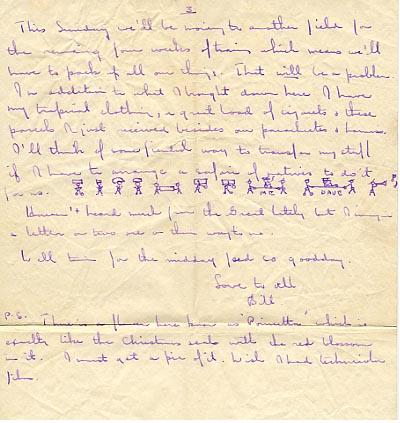 3
This Sunday we'll be moving to another field for
the remaining four weeks of training which means we'll
have to pack up all our things. That will be a problem.
In addition to what I brought down here I have
my tropical clothing, a great load of cigarets & these
parcels I just received besides our parachutes & harness.
I'll think of some way to transfer my stuff
if I have to arrange a safari of natives to do it
for me. ME DAVE
Haven't heard much from the Great lately but I imagine
a letter or two are on their way to me.
Will turn for the midday feed so goodday.
Love to all
Bill
P.S. There is a flower here known as "Poinsettia" which is
exactly like the Christmas seals with the red blossom
in it. I must get a pic of it. Wish I had technicolor
film.